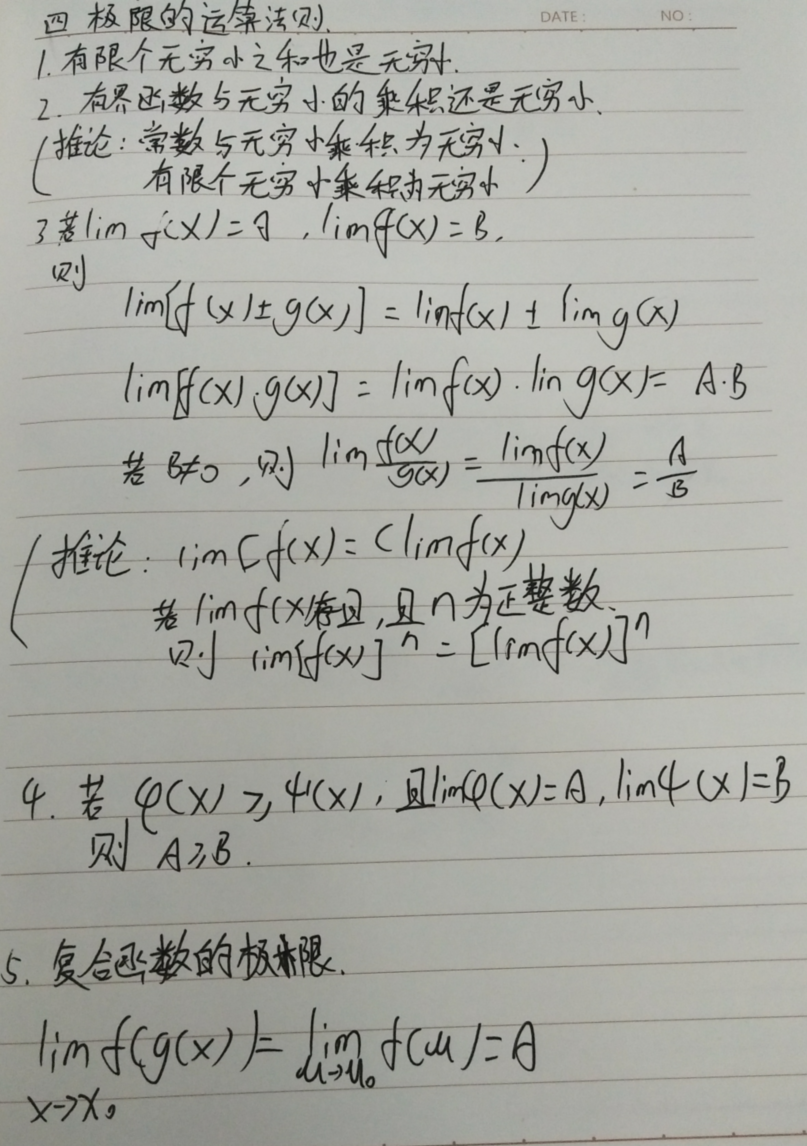 DATE: NO:
四 极限的运算法则.
1. 有限个无穷小之和也是无穷小.
2. 有界函数与无穷小的乘积还是无穷小.
(推论: 常数与无穷小乘积为无穷小.
有限个无穷小乘积为无穷小)
3 若lim f(x)=A , lim g(x)=B.
则
lim[f(x)±g(x)] = limf(x) ± lim g(x)
lim[f(x).g(x)] = limf(x) . lin g(x)= A·B
若 B≠0 , 则 lim f(x)/g(x) = limf(x)/limg(x) = A/B
(推论: lim C f(x) = C lim f(x)
若 lim f(x)存在, 且 n 为正整数.
则 lim[f(x)]^n = [limf(x)]^n
4. 若 φ(x) ≥ ψ(x), 且limφ(x)=A, limψ(x)=B
则 A≥B.
5. 复合函数的极限.
lim f(g(x))= lim f(u)=A
x→x₀ u→u₀